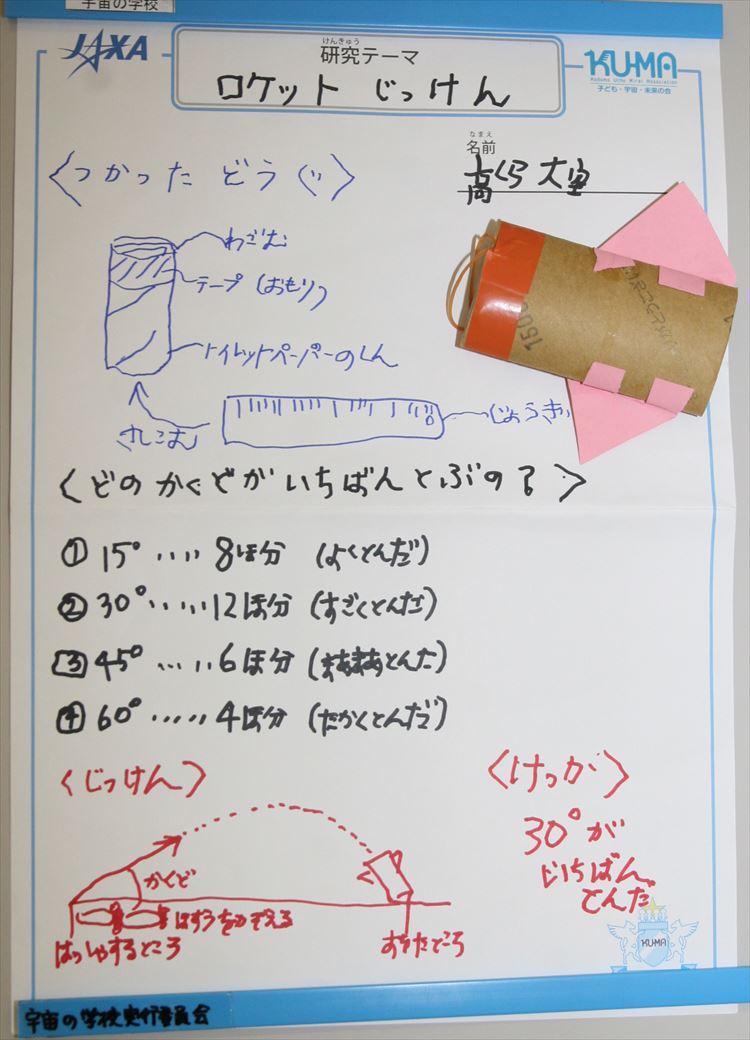 宇宙の学校
JAXA
けんきゅう
研究テーマ
ロケット じっけん
KU-MA
Kodomo Uchu Mirai Association
子ども・宇宙・未来の会
なまえ
名前
高くら 大空
〈つかった どうぐ〉
わごむ
テープ (おもり)
トイレットペーパーのしん
さしこむ
じょうぎ
1500
〈どの かくどが いちばん とぶの?〉
① 15°‥‥8ほ分 (よくとんだ)
② 30°‥‥‥12ほ分 (すごくとんだ)
③ 45°‥‥‥6ほ分 (まあまあとんだ)
④ 60°‥‥‥4ほ分 (たかくとんだ)
〈じっけん〉
かくど
ほすうをかぞえる
はっしゃするところ
おちたところ
〈けっか〉
30°が
いちばん
とんだ
KU-MA
宇宙の学校実行委員会